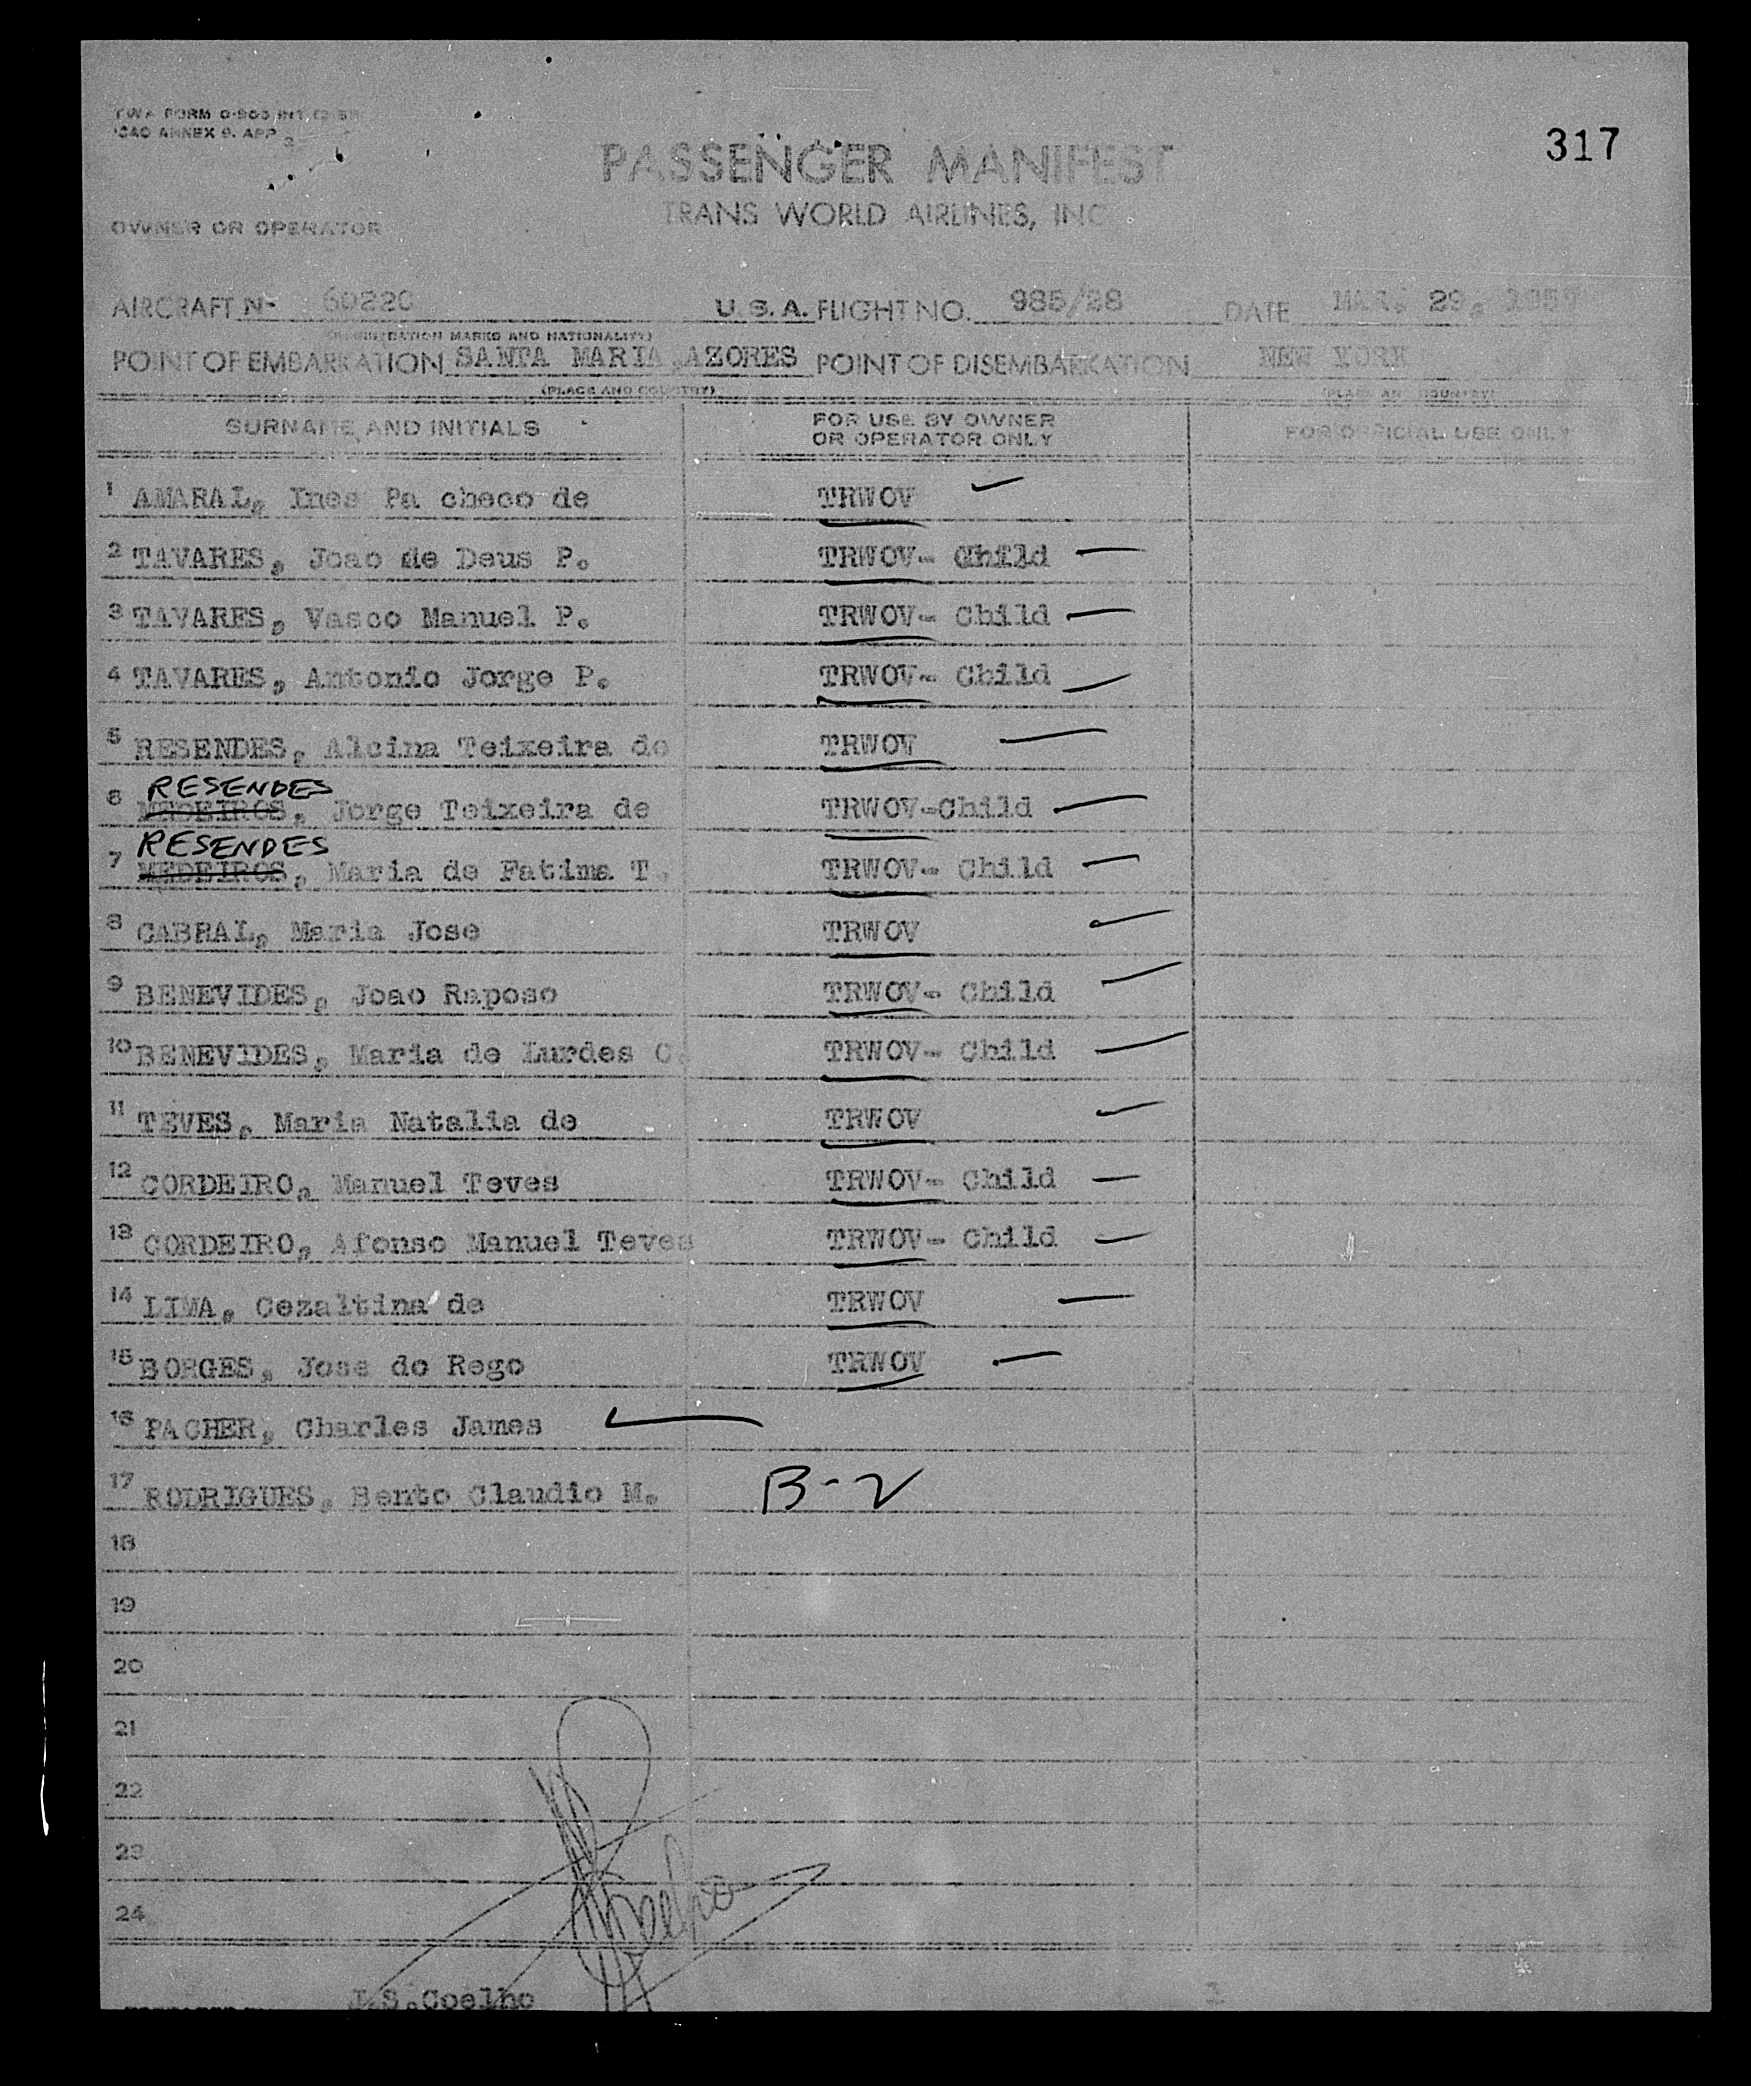 TWA FORM
ICAO ANNEX 9. APP 3
317
PASSENGER MANIFEST
TRANS WORLD AIRLINES, INC
OWNER OR OPERATOR
AIRCRAFT No 6022C U. S. A. FLIGHT NO. 985/28 DATE MAR. 29, 1957
(REGISTRATION MARKS AND NATIONALITY)
POINT OF EMBARKATION SANTA MARIA, AZORES POINT OF DISEMBARKATION NEW YORK
(PLACE AND COUNTRY) (PLACE AND COUNTRY)
SURNAME AND INITIALS FOR USE BY OWNER OR OPERATOR ONLY FOR OFFICIAL USE ONLY
1 AMARAL, Ines Pa checo de TRWOV
2 TAVARES, Joao de Deus P. TRWOV- Child
3 TAVARES, Vasco Manuel P. TRWOV- Child
4 TAVARES, Antonio Jorge P. TRWOV- Child
5 RESENDES, Alcina Teixeira de TRWOV
RESENDES
6 MEDEIROS, Jorge Teixeira de TRWOV-Child
RESENDES
7 MEDEIROS, Maria de Fatima T. TRWOV- Child
8 CABRAL, Maria Jose TRWOV
9 BENEVIDES, Joao Raposo TRWOV- Child
10 BENEVIDES, Maria de Lurdes C. TRWOV- Child
11 TEVES, Maria Natalia de TRWOV
12 CORDEIRO, Manuel Teves TRWOV- Child
13 CORDEIRO, Afonso Manuel Teves TRWOV- Child
14 LIMA, Cezaltina de TRWOV
15 BORGES, Jose do Rego TRWOV
16 PACHER, Charles James
17 RODRIGUES, Bento Claudio M. B-2
18
19
20
21
22
23
24
Coelho
J.S.Coelho 1